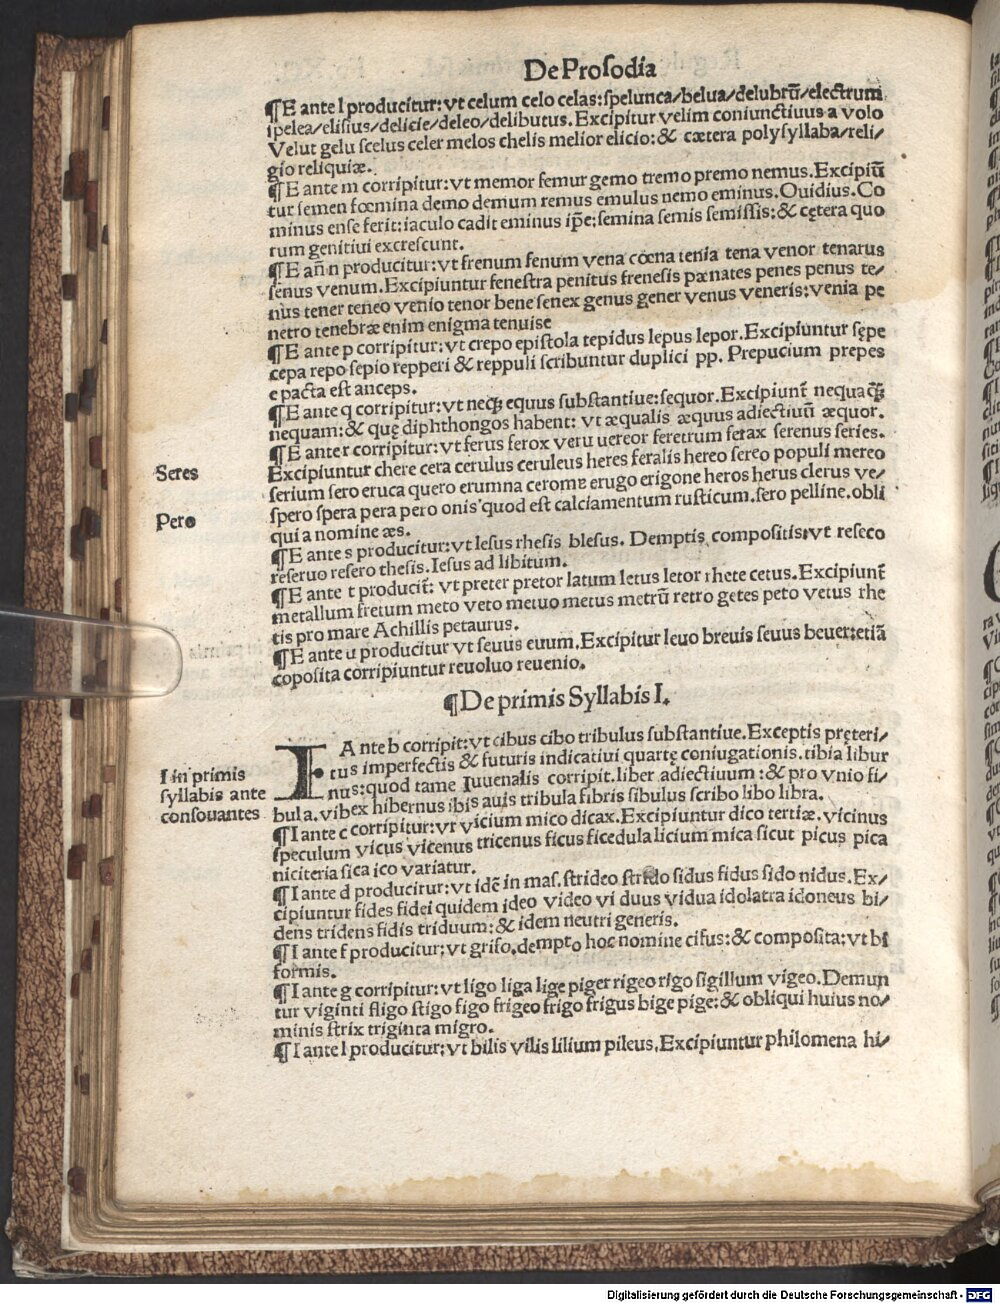 De Prosodia
¶E ante l producitur: vt celum celo celas: spelunca/belua/delubrũ/electrum
spelea/elisius/delicie/deleo/delibutus. Excipitur velim coniunctiuus a volo
Velut gelu scelus celer melos chelis melior elicio: & cætera polysyllaba/reli/
gio reliquiæ.
¶E ante m corripitur: vt memor femur gemo tremo premo nemus. Excipiũ
tur semen fœmina demo demum remus emulus nemo eminus. Ouidius. Co
minus ense ferit: iaculo cadit eminus ip̃e; semina semis semissis: & cętera quo
rum genitiui excrescunt.
¶E añ n producitur: vt frenum fenum vena cœna tenia tena venor tenarus
senus venum. Excipiuntur fenestra penitus frenesis pænates penes penus te/
nus tener teneo venio tenor bene senex genus gener venus veneris: venia pe
netro tenebræ enim enigma tenuise
¶E ante p corripitur: vt crepo epistola tepidus lepus lepor. Excipiuntur sępe
cepa repo sepio repperi & reppuli scribuntur duplici pp. Prepucium prepes
e pacta est anceps.
¶E ante q corripitur: vt neq̃ equus substantiue: sequor. Excipiunt̃ nequaq̃
nequam: & quę diphthongos habent: vt æqualis æquus adiectiuũ æquor.
¶E ante r corripitur: vt ferus ferox veru uereor feretrum fetax serenus series.
Seres
Excipiuntur chere cera cerulus ceruleus heres feralis hereo sereo populi mereo
serium sero eruca quero erumna cerome erugo erigone heros herus clerus ve/
Pero
spero spera pera pero onis quod est calciamentum rusticum. sero pelline. obli
qui a nomine æs.
¶E ante s producitur: vt lesus rhesis blesus. Demptis compositis: vt reseco
reseruo resero thesis. Iesus ad libitum.
¶E ante t producit̃: vt preter pretor latum letus letor rhete cetus. Excipiunt̃
metallum fretum meto veto metuo metus metrũ retro getes peto vetus rhe
tis pro mare Achillis petaurus.
¶E ante u producitur vt seuus euum. Excipitur leuo breuis seuus beuer: etiã
coposita corripiuntur reuoluo reuenio.
¶De primis Syllabis I.
I in primis
syllabis ante
consouantes
I Ante b corripit: vt cibus cibo tribulus substantiue. Exceptis pręteri/
tus imperfectis & futuris indicatiui quartę coniugationis. tibia libur
nus: quod tame Iuuenalis corripit. liber adiectiuum: & pro vnio fi/
bula. vibex hibernus ibis auis tribula fibris sibulus scribo libo libra.
¶I ante c corripitur: vr vicium mico dicax. Excipiuntur dico tertiæ. vicinus
speculum vicus vicenus tricenus ficus ficedula licium mica sicut picus pica
niciteria sica ico variatur.
¶I ante d producitur: vt idẽ in mas. strideo strido sidus fidus sido nidus. Ex/
cipiuntur fides fidei quidem ideo video vi duus vidua idolatra idoneus bi/
dens tridens fidis triduum: & idem neutri generis.
¶I ante f producitur: vt grifo. dempto hoc nomine cifus: & composita: vt bi
formis.
¶I ante g corripitur: vt ligo liga lige piger rigeo rigo sigillum vigeo. Demun
tur viginti fligo stigo figo frigeo frigo frigus bige pige: & obliqui huius no/
minis strix triginta migro.
¶I ante l producitur: vt bilis vilis lilium pileus. Excipiuntur philomena hi/
Digitalisierung gefördert durch die Deutsche Forschungsgemeinschaft - DFG